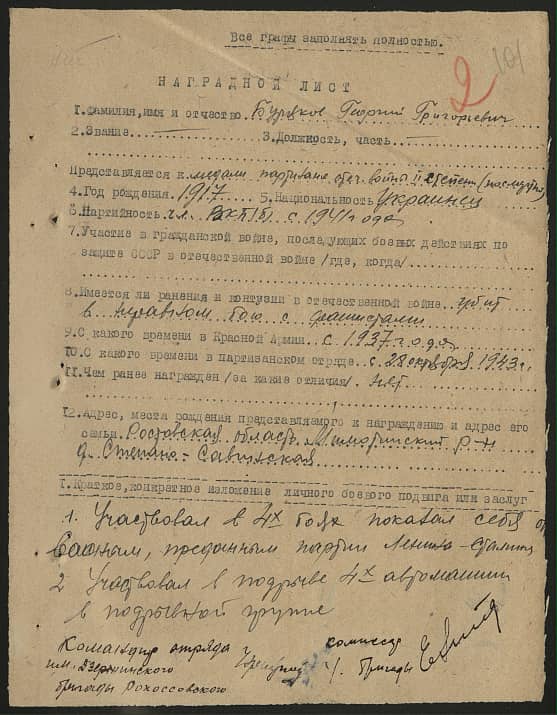 Все графы заполнять полностью.
2 101
НАГРАДНОЙ ЛИСТ
I.Фамилия,имя и отчество Буряков Георгий Григорьевич
2.Звание.......... 3.Должность, часть
Представляется к медали партизана отеч. войны II степени (посмертно)
4.Год рождения. 1917 5.Национальность Украинец
6.Партийность чл. ВКП(б) с 1941 года
7.Участие в гражданской войне, последующих боевых действиях по
защите СССР в отечественной войне /где, когда/
8.Имеется ли ранения и контузии в отечественной войне убит
в неравном бою с фашистами
9.С какого времени в Красной Армии. с 1937 года
10.С какого времени в партизанском отряде с 28 октября 1943 г.
II.Чем ранее награжден /за какие отличия/. нет
12.Адрес, места рождения представляемого к награждению и адрес его
семьи. Ростовская область, р-н
д. Степано-Савинская
I.Краткое,конкретное изложение личного боевого подвига или заслуг
1. Участвовал в 4х боях показал себя
преданным партии Ленина-Сталина
2 Участвовал в подрыве 4х автомашин
в подрывной группе
Командир отряда
им. Дзержинского
бригады Рокоссовского
комиссар
бригады